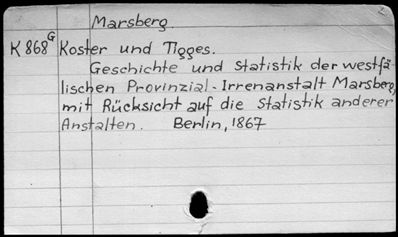 Marsberg.
K 868 G Koster und Tigges.
Geschichte und Statistik der westfä-
lischen Provinzial-Irrenanstalt Marsberg,
mit Rücksicht auf die Statistik anderer
Anstalten. Berlin, 1867